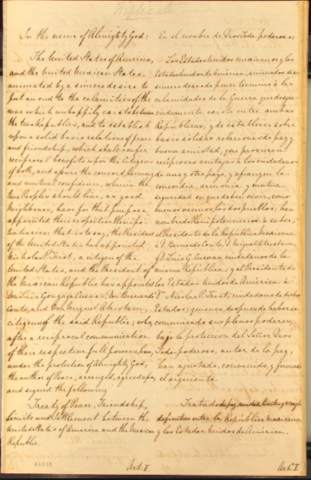 In the name of Almighty God:
The United States of America,
and the United Mexican States,
animated by a sincere desire to
put an end to the calamities of the
war which unhappily exists between
the two Republics, and to establish
upon a solid basis relations of peace
and friendship, which shall confer
reciprocal benefits upon the citizens
of both, and assure the concord, harmony
and mutual confidence, wherein the
two Peoples should live, as good
Neighbours, have for that purpose
appointed their respective Plenipo-
tentiaries: that is to say, the President
of the United States has appointed
Nicholas P. Trist, a citizen of the
United States, and the President of
the Mexican Republic has appointed
Don Luis Gonzaga Cuevas, Don Bernardo
Couto, and Don Miguel Atristain,
citizens of the said Republic; who,
after a reciprocal communication
of their respective full powers, have,
under the protection of Almighty God,
the author of Peace, arranged, agreed upon,
and signed the following
Treaty of Peace, Friendship,
Limits and Settlement between the
United States of America and the Mexican
Republic.
Art. I.
En el nombre de Dios Todo poderoso:
Los Estados Unidos mexicanos y los
Estados Unidos de America, animados de un
sincero deseo de poner termino á las
calamidades de la Guerra que desgra-
ciadamente existe entre ambas
Republicas, y de establecer sobre
bases solidas relaciones de paz y
buena amistad, que procuren
reciprocas ventajas á los ciudadanos
de uno y otro pays, y afiancen la
concordia, armonia y mutua
seguridad
de la Republica Mexicana
á D. Bernardo Couto, D. Miguel Atristain, y
D. Luis G. Cuevas ciudadanos de la
misma Republica; y el Presidente de
los Estados Unidos de America á
D. Nicolas P. Trist, ciudadano de dichos
Estados; quienes despues de haberse
comunicado sus plenos poderes,
bajo la proteccion del Señor Dios
Todo poderoso, autor de la paz,
han ajustado, convenido, y firmado
el siguiente
Tratado de paz, amistad, limites y arreglo
definitivo entre la Republica Mexicana
y los Estados Unidos de America.
Art. I.